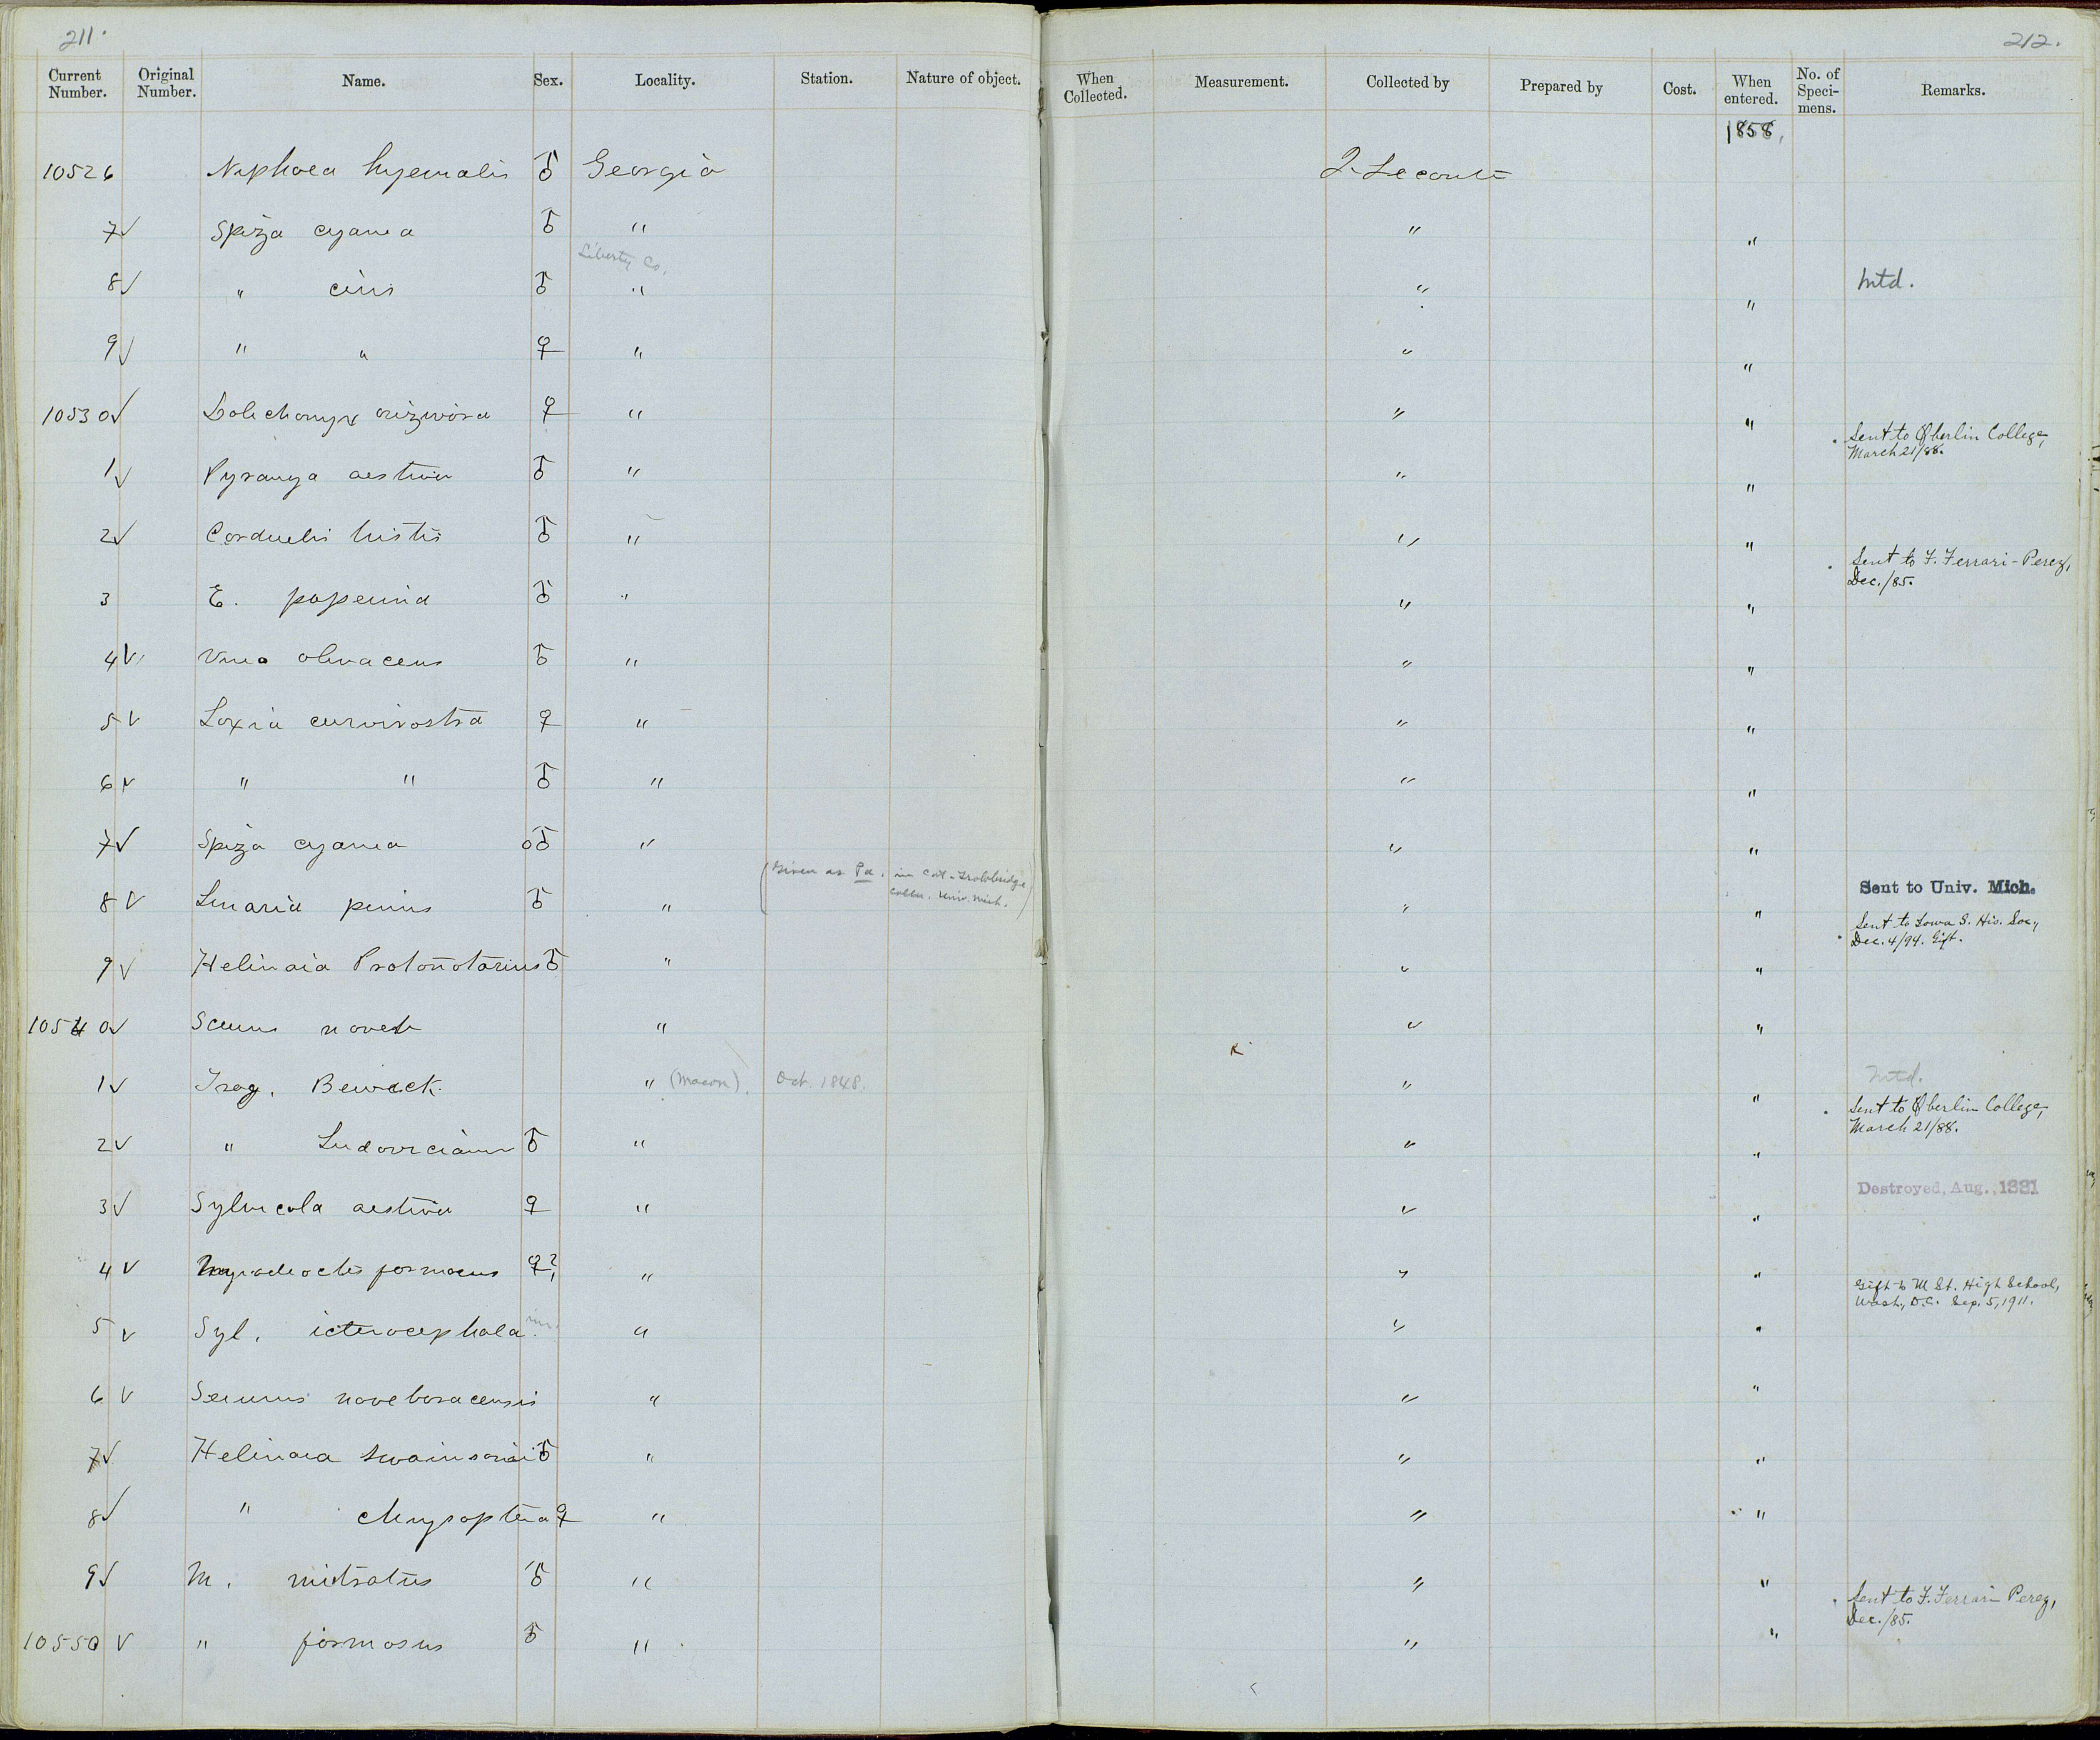 211.
212.
Current Number. Original Number. Name. Sex. Locality. Station. Nature of object. When Collected. Measurement. Collected by Prepared by Cost. When entered. No. of Specimens. Remarks.
1858,
10526 Niphaea hyemalis ♂ Georgia J. Leconte
7 ✓ Spiza cyanea ♂ " " "
Liberty Co.
8 ✓ " ciris ♂ " " " Mtd.
9 ✓ " " ♀ " " "
10530 ✓ Dolichonyx orizivora ♀ " " " Sent to Oberlin College,
March 21/88.
1 ✓ Pyranga aestiva ♂ " " "
2 ✓ Carduelis tristis ♂ " " " Sent to F. Ferrari-Perez,
Dec./85.
3 E. ♂ " " "
4 ✓ Vireo olivaceus ♂ " " "
5 ✓ Loxia curvirostra ♀ " " "
6 ✓ " " ♂ " " "
7 ✓ Spiza cyanea ♂ " " "
(Given as Pa. in Cat. Trowbridge
Colln. Univ. Mich.)
8 ✓ Linaria pinus ♂ " " " Sent to Univ. Mich.
Sent to Iowa S. His. Soc.,
Dec. 4/94. Gift.
9 ✓ Helinaia Protonotarius ♂ " " "
10540 ✓ Seiurus noveb " " "
1 ✓ Trog. Bewick. " (Macon). Oct. 1848. " " Mtd.
Sent to Oberlin College,
March 21/88.
2 ✓ " Ludovicianus ♂ " " "
3 ✓ Sylvicola aestiva ♀ " " " Destroyed, Aug., 1881
4 ✓ Myiodioctes formosus ♀? " " " Gift to M St. High School,
Wash., D.C. Sep. 5, 1911.
5 ✓ Syl. icterocephala im. " " "
6 ✓ Seiurus noveboracensis " " "
7 ✓ Helinaia swainsonii ♂ " " "
8 ✓ " chrysoptera ♀ " " "
9 ✓ M. mitratus ♂ " " " Sent to F. Ferrari Perez,
Dec./85.
10550 ✓ " formosus ♂ " " "